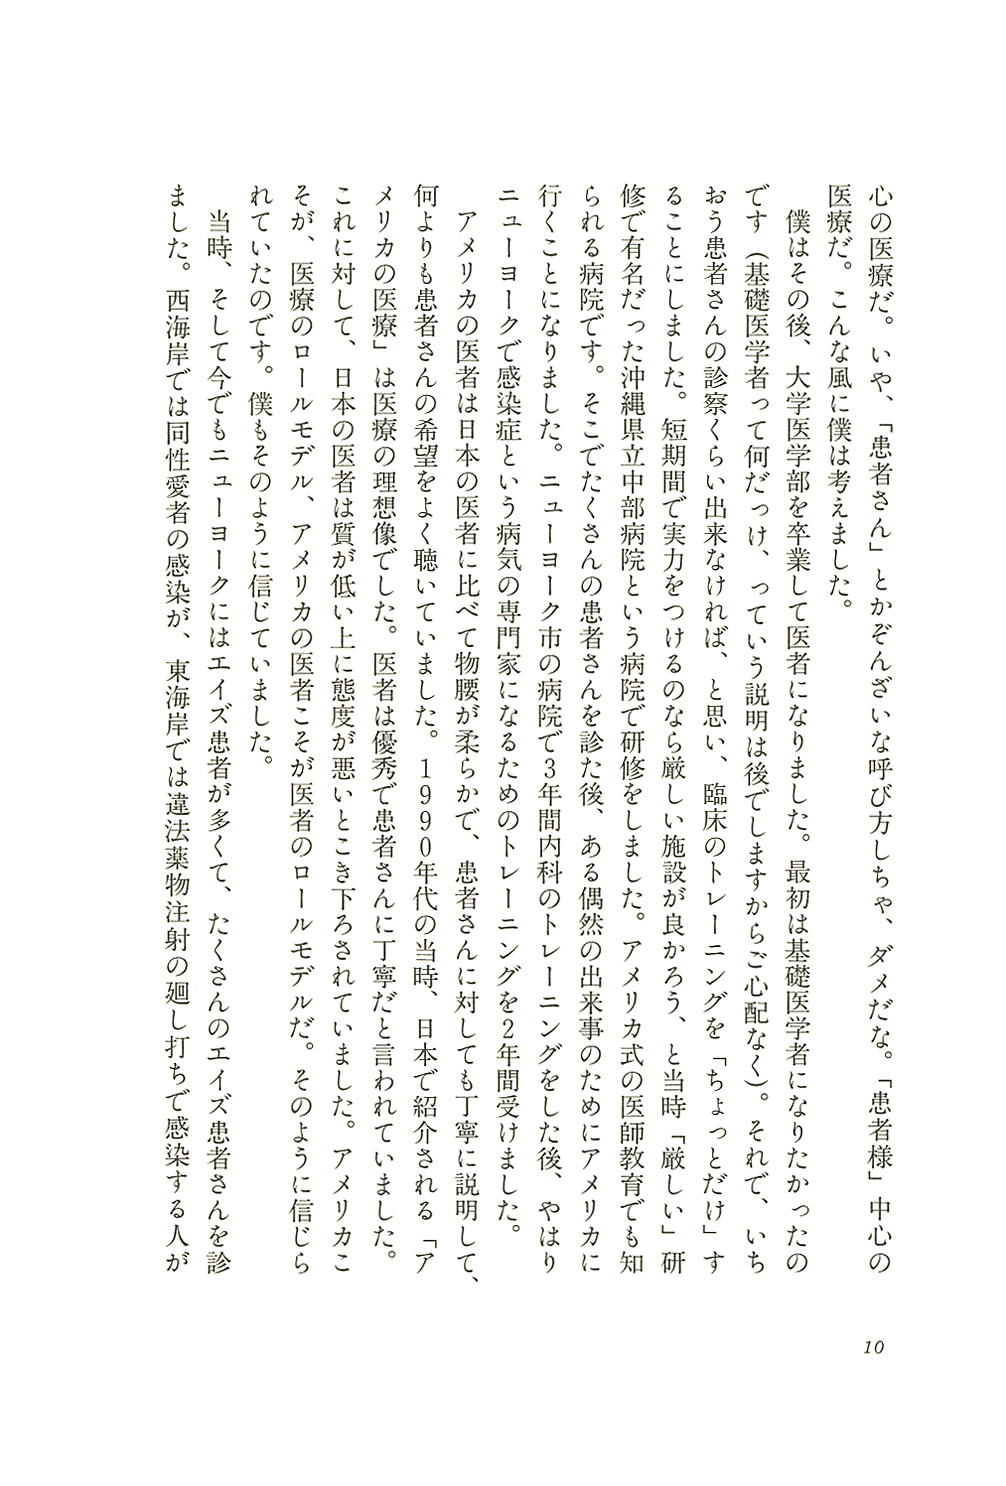 心の医療だ。いや、「患者さん」とかぞんざいな呼び方しちゃ、ダメだな。「患者様」中心の
医療だ。こんな風に僕は考えました。
　僕はその後、大学医学部を卒業して医者になりました。最初は基礎医学者になりたかったの
です（基礎医学者って何だっけ、っていう説明は後でしますからご心配なく）。それで、いち
おう患者さんの診察くらい出来なければ、と思い、臨床のトレーニングを「ちょっとだけ」す
ることにしました。短期間で実力をつけるのなら厳しい施設が良かろう、と当時「厳しい」研
修で有名だった沖縄県立中部病院という病院で研修をしました。アメリカ式の医師教育でも知
られる病院です。そこでたくさんの患者さんを診た後、ある偶然の出来事のためにアメリカに
行くことになりました。ニューヨーク市の病院で3年間内科のトレーニングをした後、やはり
ニューヨークで感染症という病気の専門家になるためのトレーニングを2年間受けました。
　アメリカの医者は日本の医者に比べて物腰が柔らかで、患者さんに対しても丁寧に説明して、
何よりも患者さんの希望をよく聴いていました。1990年代の当時、日本で紹介される「ア
メリカの医療」は医療の理想像でした。医者は優秀で患者さんに丁寧だと言われていました。
これに対して、日本の医者は質が低い上に態度が悪いとこき下ろされていました。アメリカこ
そが、医療のロールモデル、アメリカの医者こそが医者のロールモデルだ。そのように信じら
れていたのです。僕もそのように信じていました。
　当時、そして今でもニューヨークにはエイズ患者が多くて、たくさんのエイズ患者さんを診
ました。西海岸では同性愛者の感染が、東海岸では違法薬物注射の廻し打ちで感染する人が
10